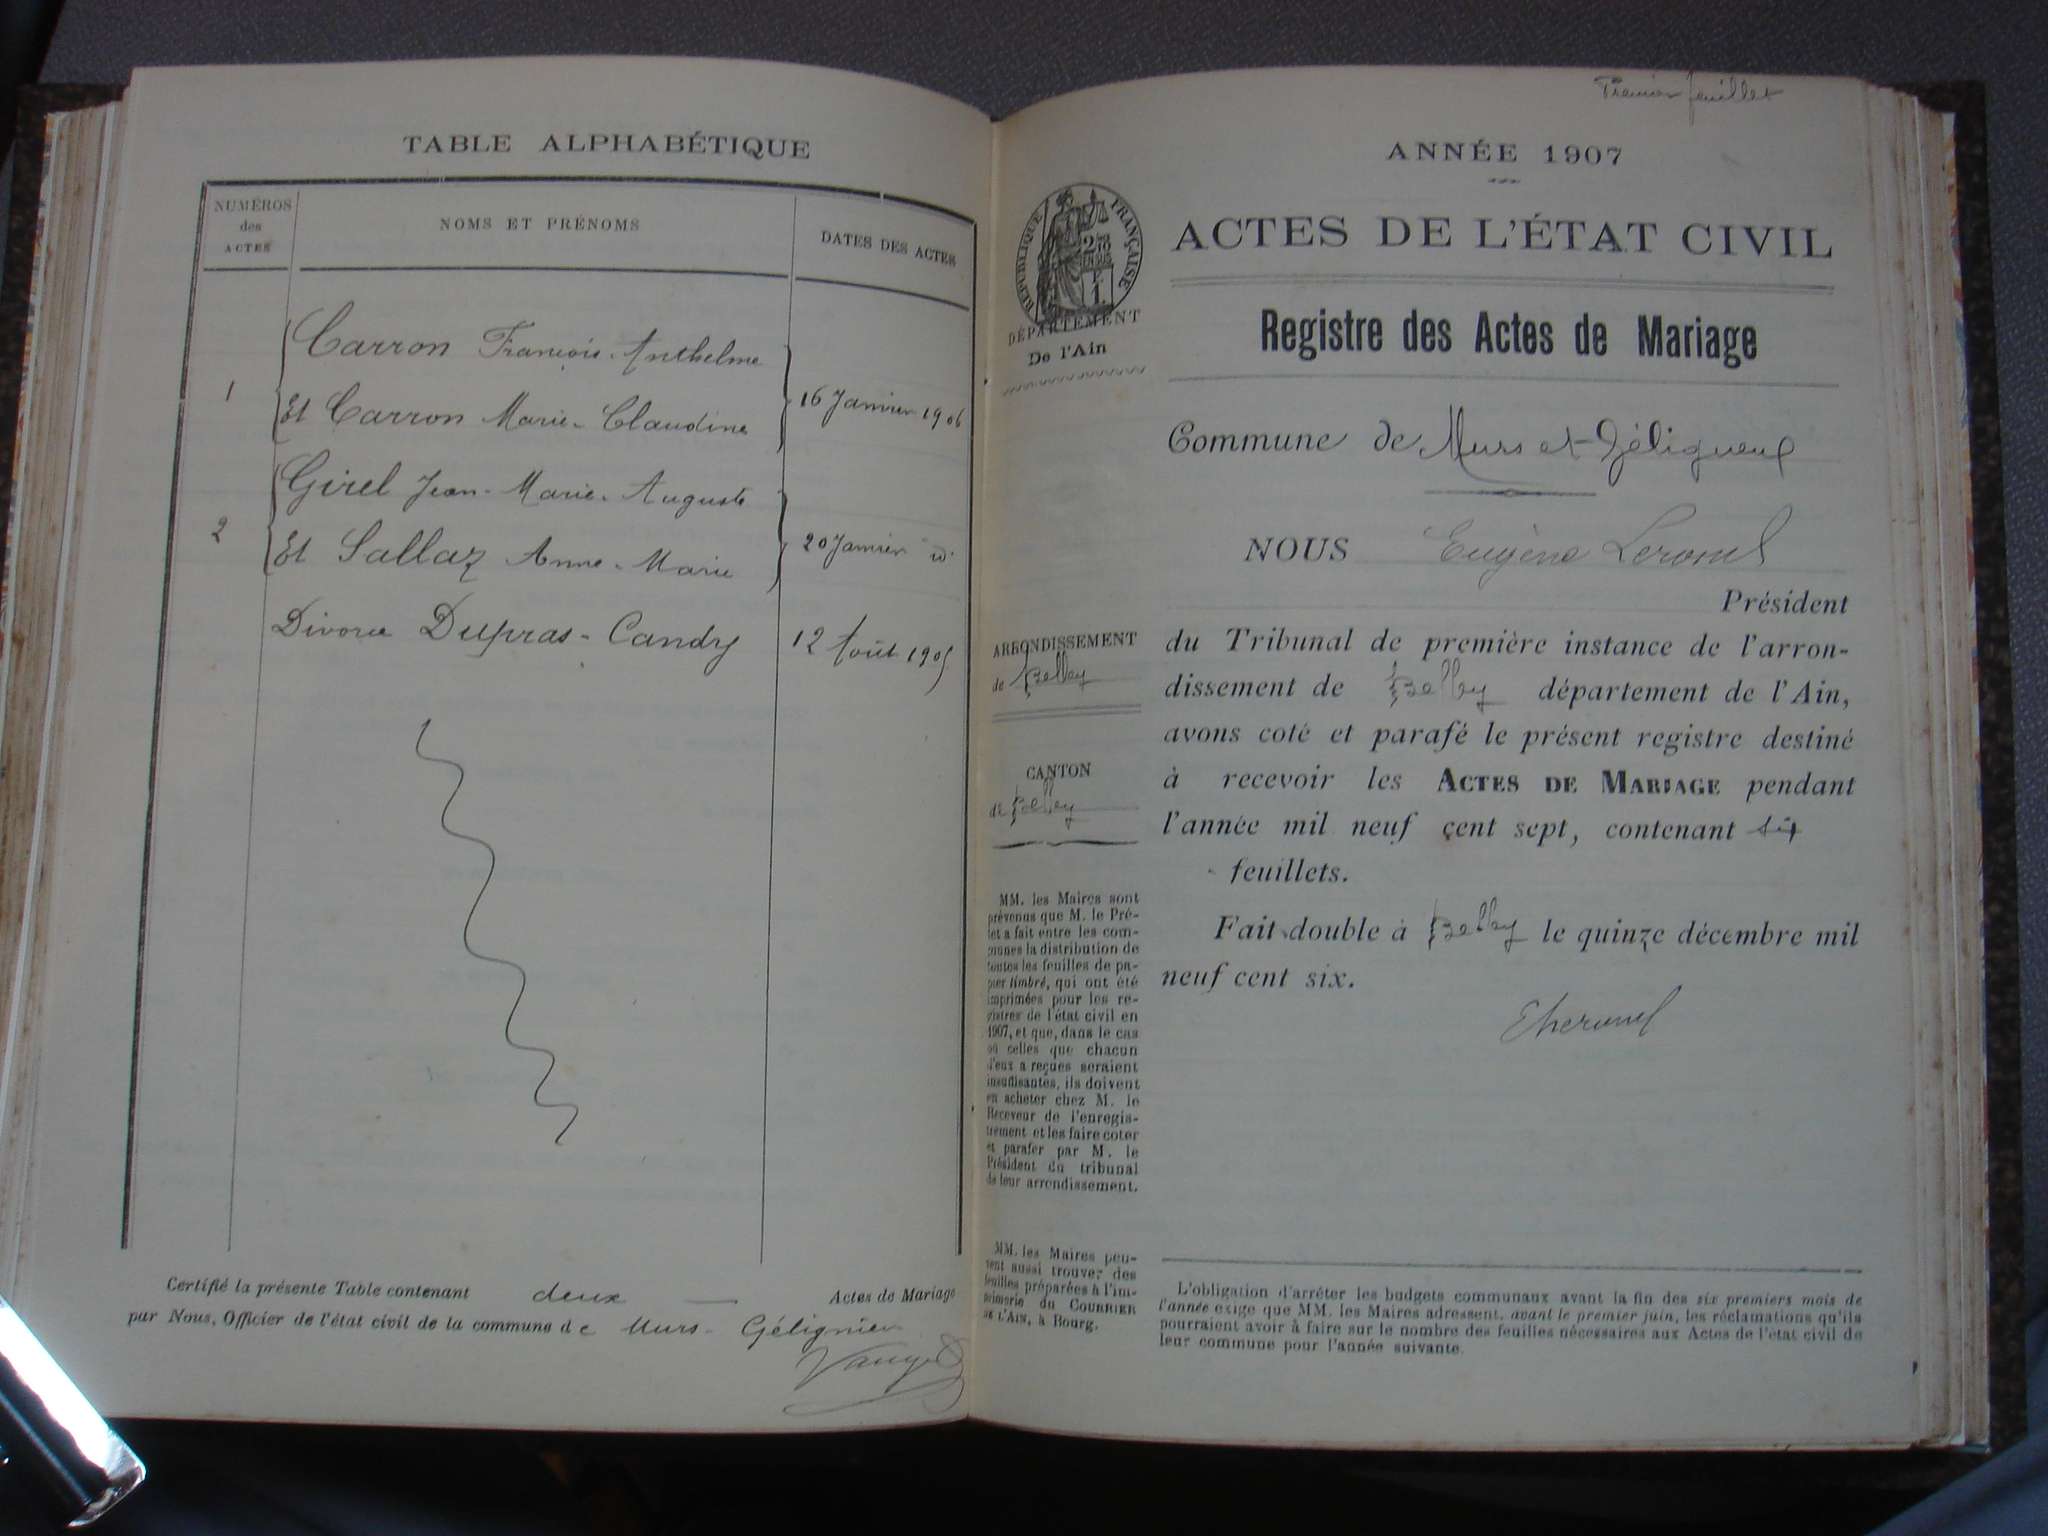 TABLE ALPHABÉTIQUE
NUMÉROS
des
ACTES
NOMS ET PRÉNOMS
DATES DES ACTES
Carron François-Anthelme
1
Et Carron Marie-Claudine
16 Janvier 1906
Girel Jean-Marie-Auguste
2
Et Sallaz Anne-Marie
20 Janvier id.
Divorce Dupras-Candy
12 Août 1905
Certifié la présente Table contenant deux Actes de Mariage
par Nous, Officier de l'état civil de la commune de Murs-Gélignieu
Premier feuillet
ANNÉE 1907
RÉPUBLIQUE FRANÇAISE
DÉPARTEMENT
De l'Ain
ACTES DE L'ÉTAT CIVIL
Registre des Actes de Mariage
Commune de Murs et Géligneux
NOUS Eugène
Président
du Tribunal de première instance de l'arron-
dissement de Belley département de l'Ain,
avons coté et parafé le présent registre destiné
à recevoir les ACTES DE MARIAGE pendant
l'année mil neuf cent sept, contenant six
feuillets.
Fait double à Belley le quinze décembre mil
neuf cent six.
ARRONDISSEMENT
de Belley
CANTON
de Belley
MM. les Maires sont
prévenus que M. le Pré-
fet a fait entre les com-
munes la distribution de
toutes les feuilles de pa-
pier timbré, qui ont été
imprimées pour les re-
gistres de l'état civil en
1907, et que, dans le cas
où celles que chacun
d'eux a reçues seraient
insuffisantes, ils doivent
en acheter chez M. le
Receveur de l'enregis-
trement et les faire coter
et parafer par M. le
Président du tribunal
de leur arrondissement.
MM. les Maires peu-
vent aussi trouver des
feuilles préparées à l'im-
primerie du COURRIER
DE L'AIN, à Bourg.
L'obligation d'arrêter les budgets communaux avant la fin des six premiers mois de
l'année exige que MM. les Maires adressent, avant le premier juin, les réclamations qu'ils
pourraient avoir à faire sur le nombre des feuilles nécessaires aux Actes de l'état civil de
leur commune pour l'année suivante.